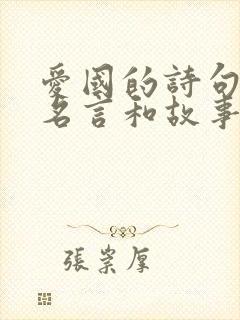 愛國的詩句
名言和故事
張崇厚